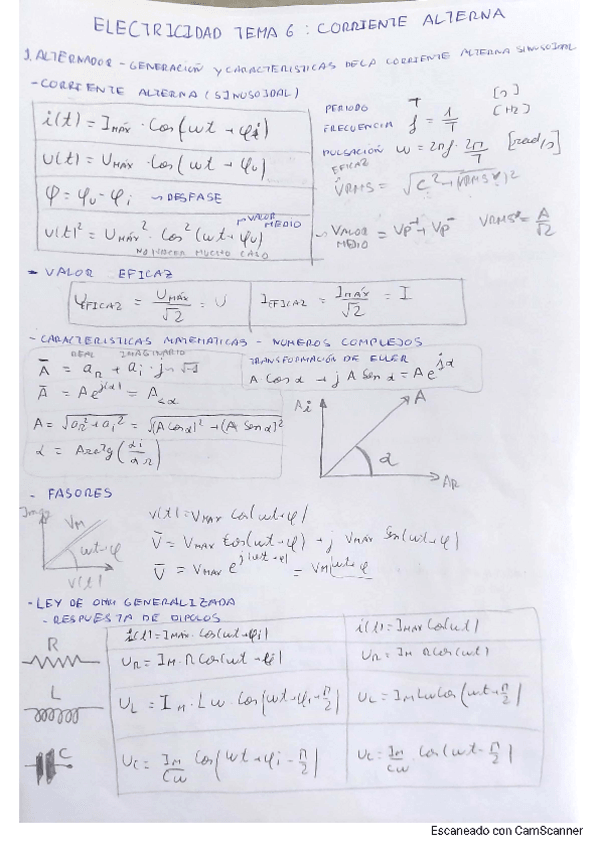 ELECTRICIDAD TEMA 6 : CORRIENTE ALTERNA
1. ALTERNADOR - GENERACIÓN Y CARACTERISTICAS DE LA CORRIENTE ALTERNA SINUSOIDAL
- CORRIENTE ALTERNA (SINUSOIDAL)
i(t) = Imáx · Cos(ωt + φi)
u(t) = Umáx · Cos(ωt + φu)
φ = φu - φi → DESFASE
u(t)² = Umáx² · Cos²(ωt + φu) → VALOR MEDIO
NO HACER MUCHO CASO
PERIODO T [s]
FRECUENCIA f = 1/T [Hz]
PULSACIÓN ω = 2πf · 2π/T [rad/s]
EFICAZ
VALOR MEDIO = Vp⁺ + Vp⁻ VRMS = A/√2
- VALOR EFICAZ
UEFICAZ = UMÁX/√2 = U IEFICAZ = IMÁX/√2 = I
- CARACTERISTICAS MATEMATICAS - NUMEROS COMPLEJOS
REAL IMAGINARIO
A̅ = ar + ai · j → √-1
A̅ = A e^j(α) = A∠α
A = √(ar² + ai²) = √((A Cosα)² + (A Senα)²)
α = Arctg(ai/ar)
TRANSFORMACIÓN DE EULER
A Cosα + j A Senα = A e^jα
Ai A α AR
- FASORES
Imag VM ωt+φ V(t)
V(t) = VMAX Cos(ωt + φ)
V̅ = VMAX Cos(ωt + φ) + j VMAX Sen(ωt + φ)
V̅ = VMAX e^j(ωt + φ) = VM∠ωt+φ
- LEY DE OHM GENERALIZADA
- RESPUESTA DE DIPOLOS
i(t) = IMÁX · Cos(ωt + φi) i(t) = IMÁX Cos(ωt)
R UR = IM · R Cos(ωt + φi) UR = IM R Cos(ωt)
L UL = IM · Lω · Cos(ωt + φi + π/2) UL = IM Lω Cos(ωt + π/2)
C UC = IM/Cω Cos(ωt + φi - π/2) UC = IM/Cω · Cos(ωt - π/2)
Escaneado con CamScanner